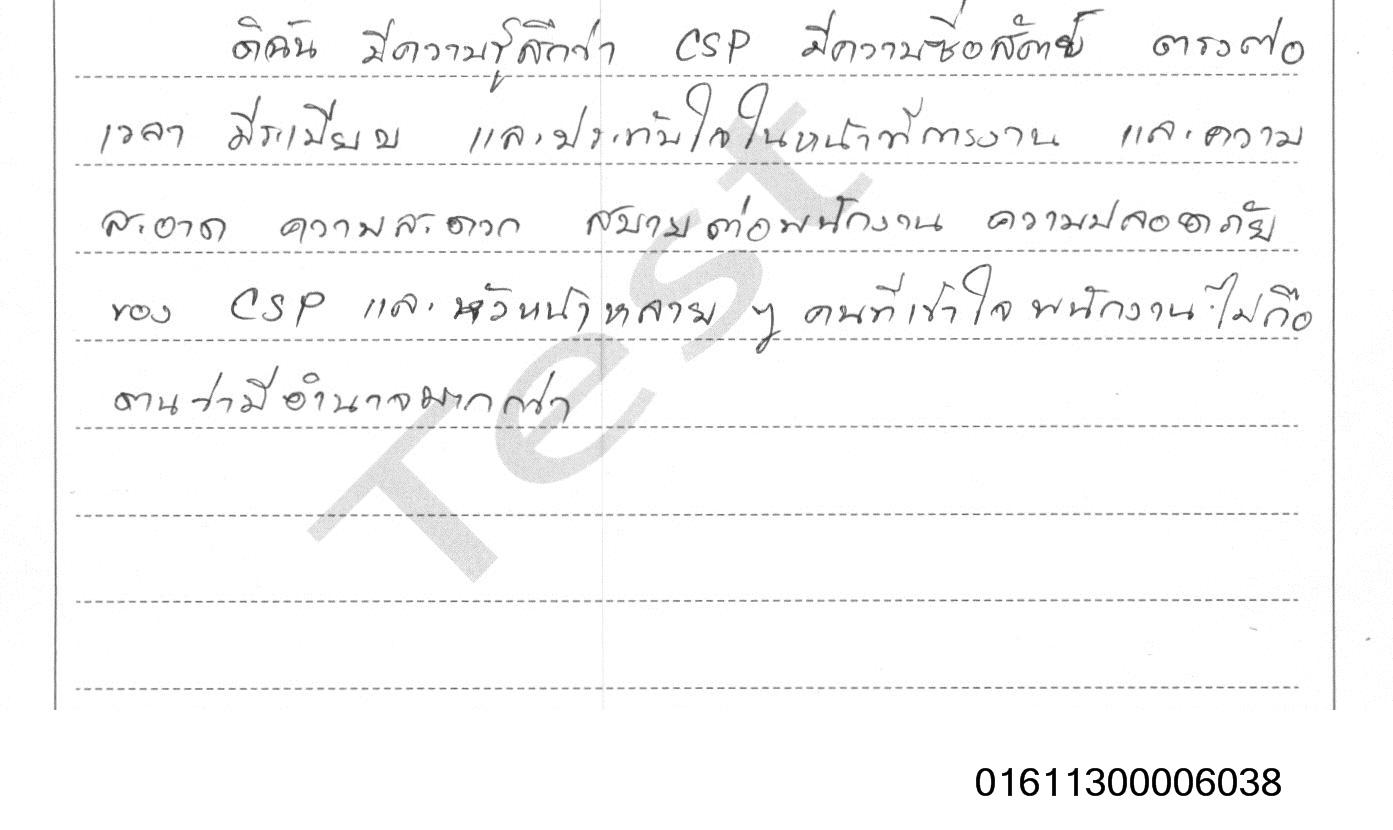 ดิฉัน มีความรู้สึกว่า CSP มีความซื่อสัตย์ ตรงต่อ
เวลา มีระเบียบ และประทับใจในหน้าที่การงาน และความ
สะอาด ความสะดวก สบายต่อพนักงาน ความปลอดภัย
ของ CSP และหัวหน้าหลาย ๆ คนที่เข้าใจพนักงานไม่ถือ
ตนว่ามีอำนาจมากกว่า
Test
01611300006038